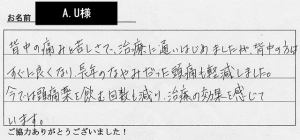 お名前 A.U様
背中の痛みと苦しさで、治療に通いはじめましたが、背中の方は
すぐに良くなり、長年のなやみだった頭痛も軽減しました。
今では頭痛薬を飲む回数も減り、治療の効果を感じて
います。
ご協力ありがとうございました！